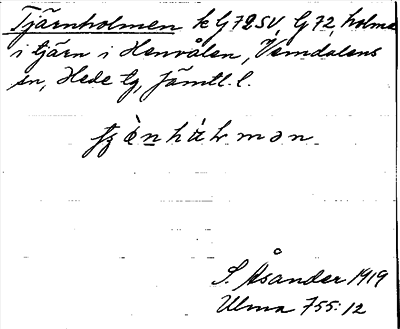 Tjärnholmen k G72SV, G72, holme
i tjärn i Henvålen, Vemdalens
sn, Hede tg, Jämtl. l.
S. Åsander 1919
Ulma 755:12